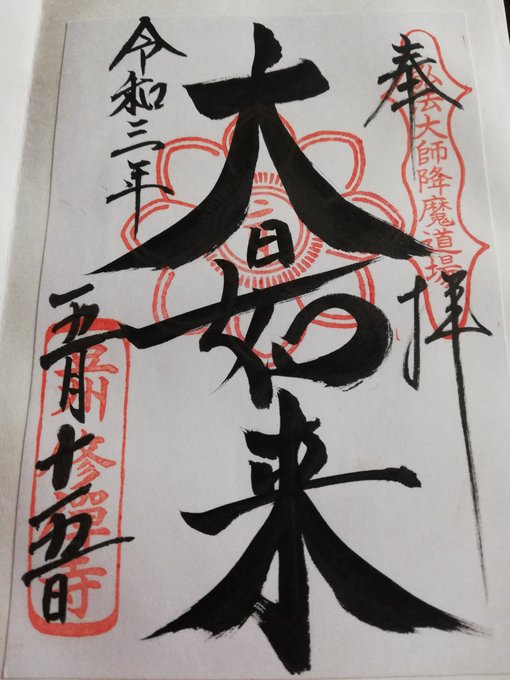 奉拝
弘法大師降魔道場
大日如来
令和三年
五月十五日
豆州 修禪寺